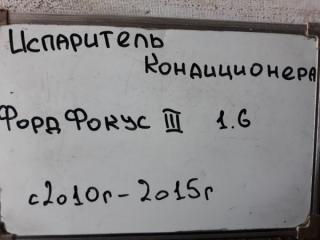 Испаритель
Кондиционера
Форд Фокус III 1.6
с2010г-2015г